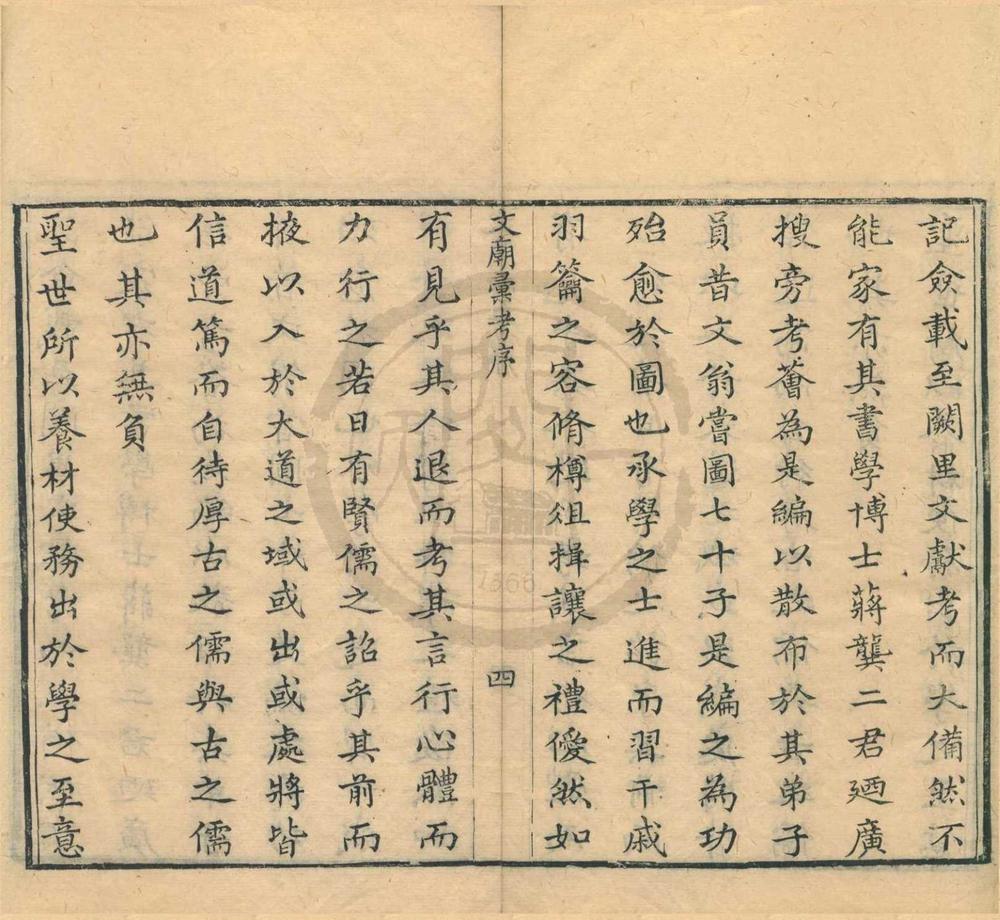 記僉載至闕里文獻考而大備然不
能家有其書學博士蔣龔二君廼廣
搜旁考薈為是編以散布於其弟子
員昔文翁嘗圖七十子是編之為功
殆愈於圖也承學之士進而習干戚
羽籥之容脩樽俎揖讓之禮僾然如
文廟彙考序
四
有見乎其人退而考其言行心體而
力行之若日有賢儒之詔乎其前而
掖以入於大道之域或出或處將皆
信道篤而自待厚古之儒與古之儒
也其亦無負
聖世所以養材使務出於學之至意
1366